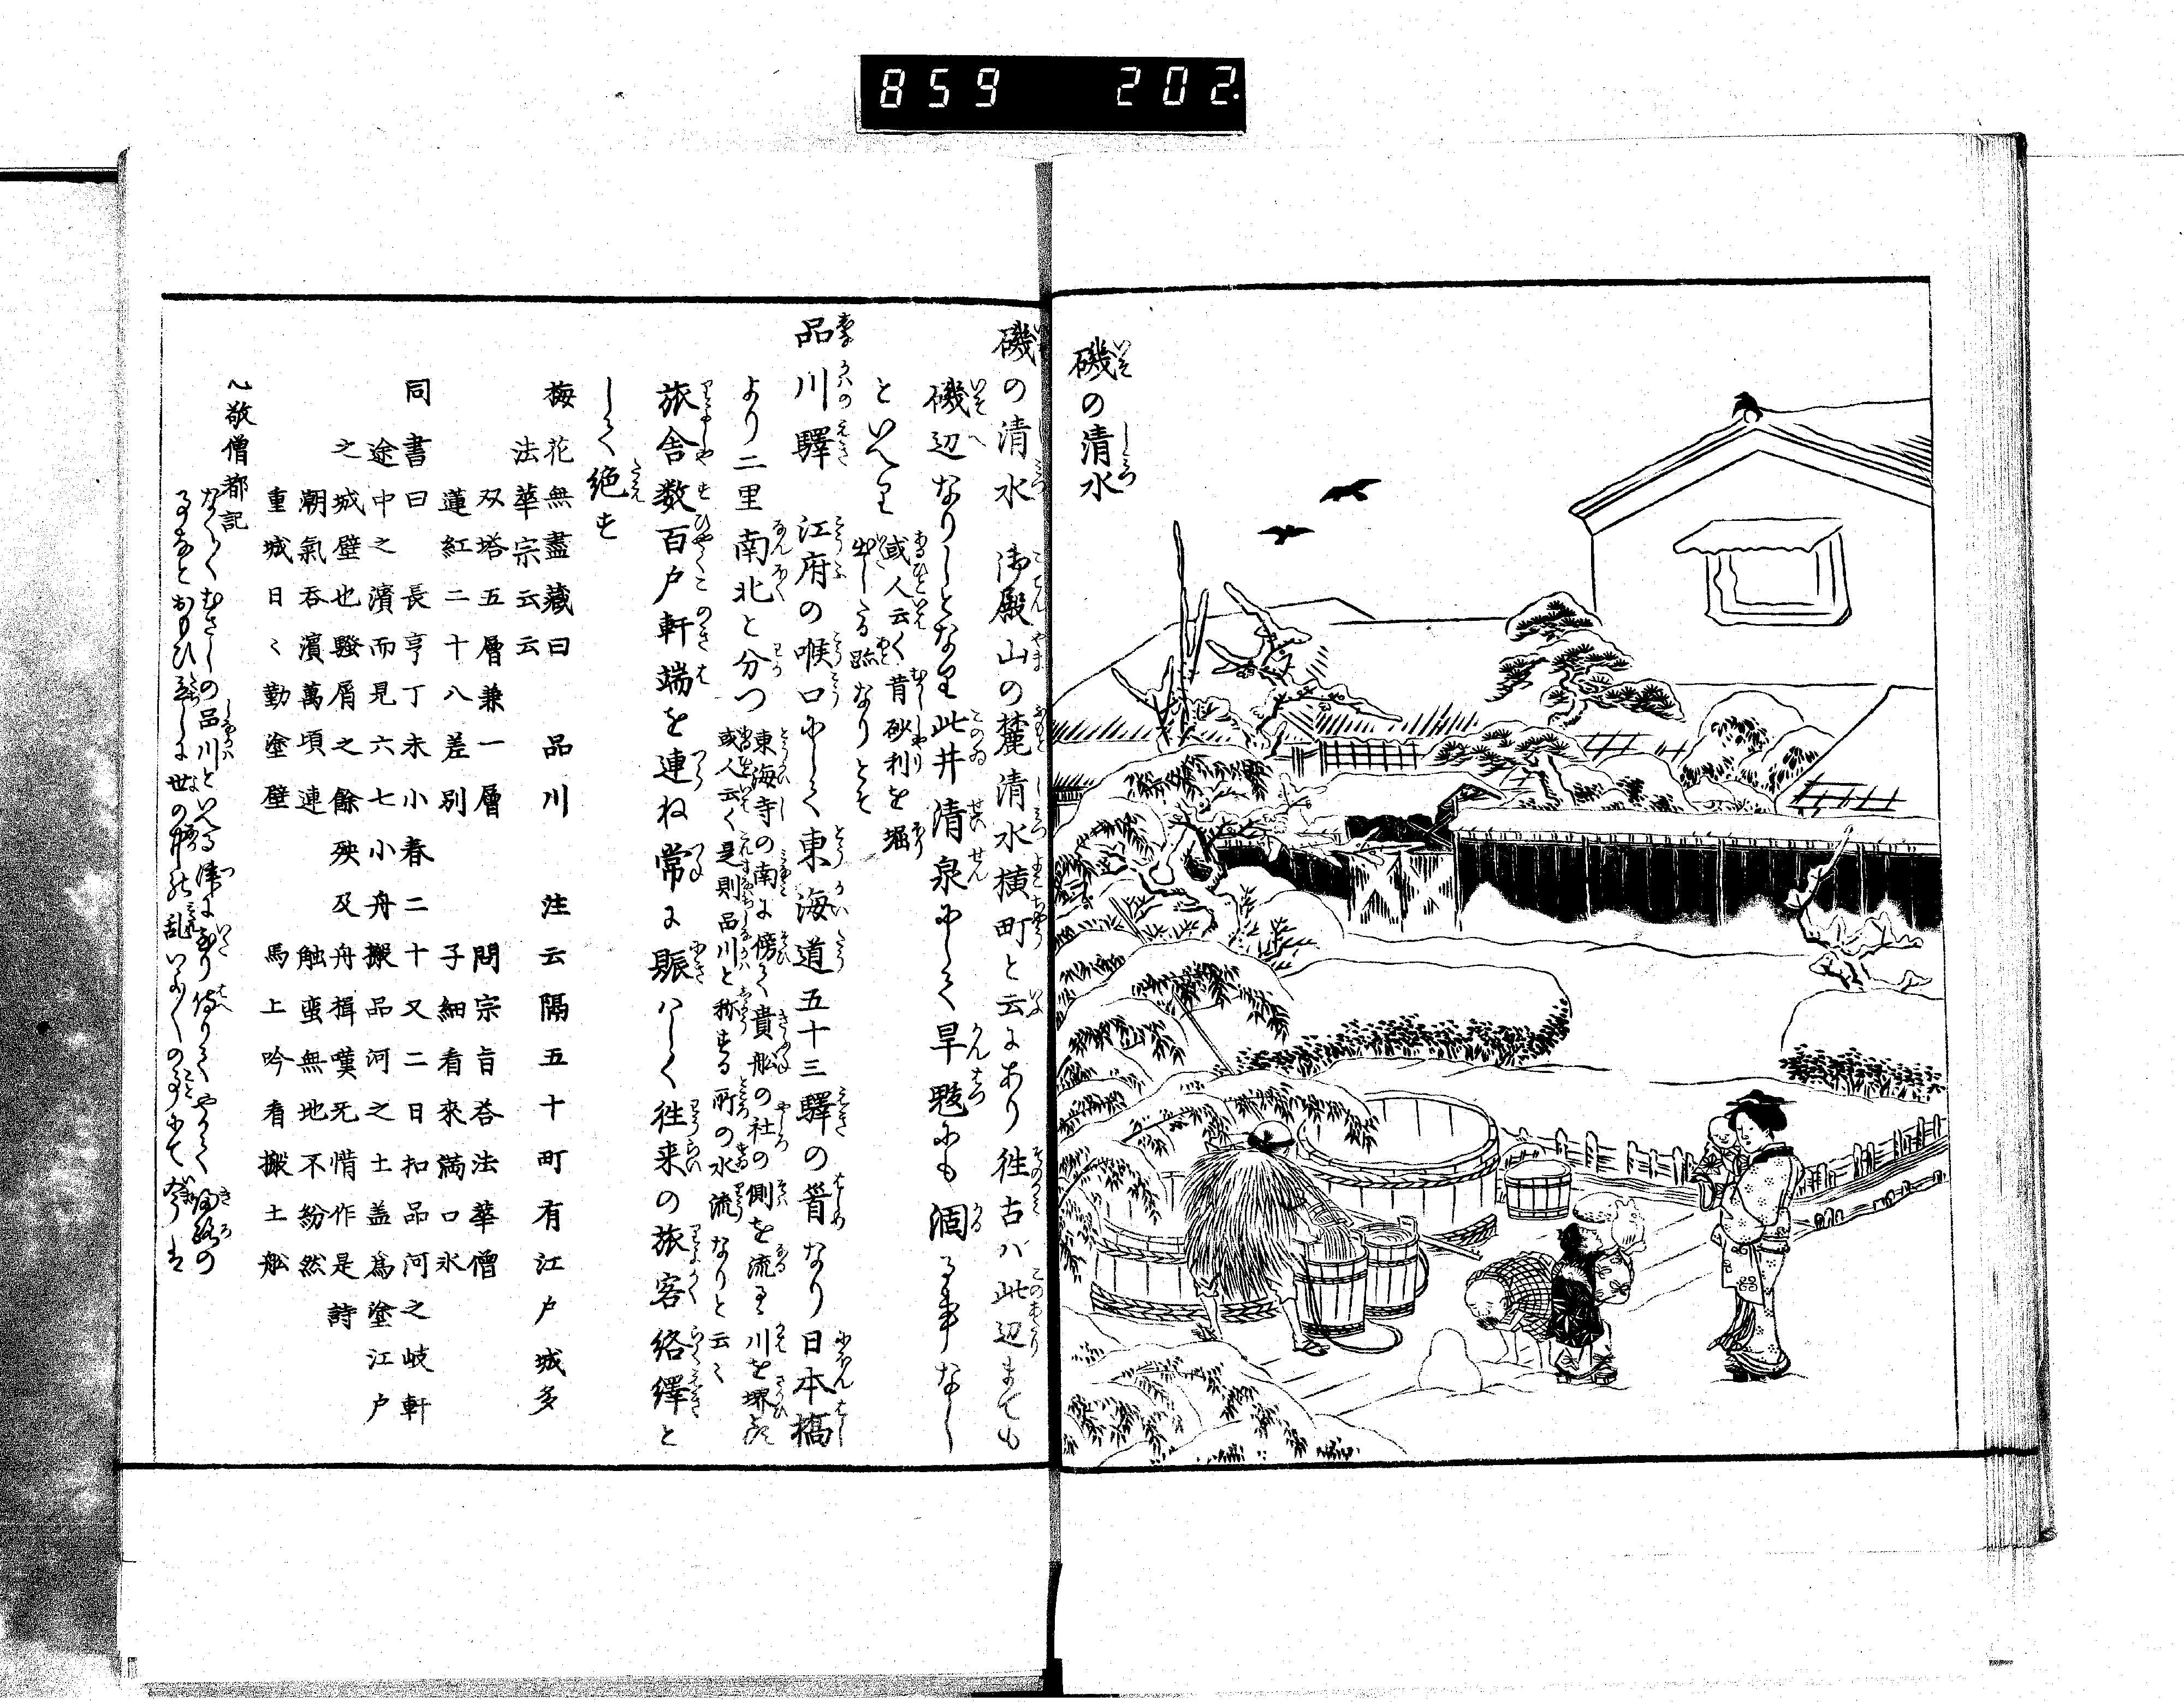 859 202.
磯の清水
磯の清水 御殿山の麓清水横町と云にあり往古ハ此辺まても
磯辺なりしとなり此井清泉にして旱魃にも涸る事なし
といへり 或人云く昔砂利を堀
出したる跡なりとそ
品川驛 江府の喉口にして東海道五十三驛の首なり日本橋
より二里南北と分つ 東海寺の南に傍て貴船の社の側を流るゝ川を堺とす
或人云く是則品川と称する所の水流なりと云々
旅舎数百戸軒端を連ね常に賑ハしく往来の旅客絡繹と
して絶す
梅花無盡藏曰 品川 注云隔五十町有江戸城多
法華宗云云
双塔五層兼一層 問宗旨答法華僧
蓮紅二十八差別 子細看來滿口氷
同書曰長亨丁未小春二十又二日扣品河之岐軒
途中之濱而見六七小舟搬品河之土蓋爲塗江戸
之城壁也騷屑之餘殃及舟楫嘆无惰作是詩
潮氣呑濱萬頃連 触蛮無地不紛然
重城日〻勤塗壁 馬上吟看搬土舩
心敬僧都記
なくむさしの品川といへる津に
世の中